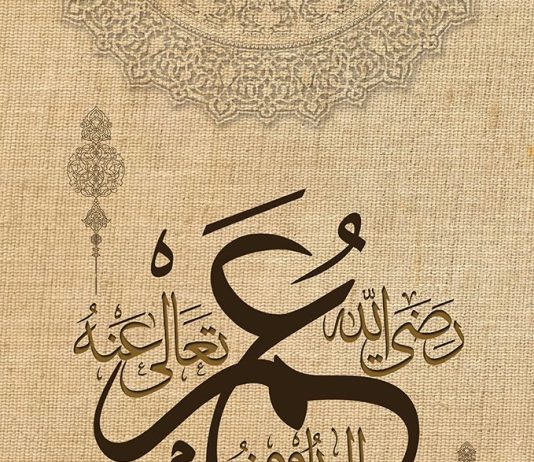 عُمَر
رَضَىَ اللّٰه تَعَالَى عَنْهُ